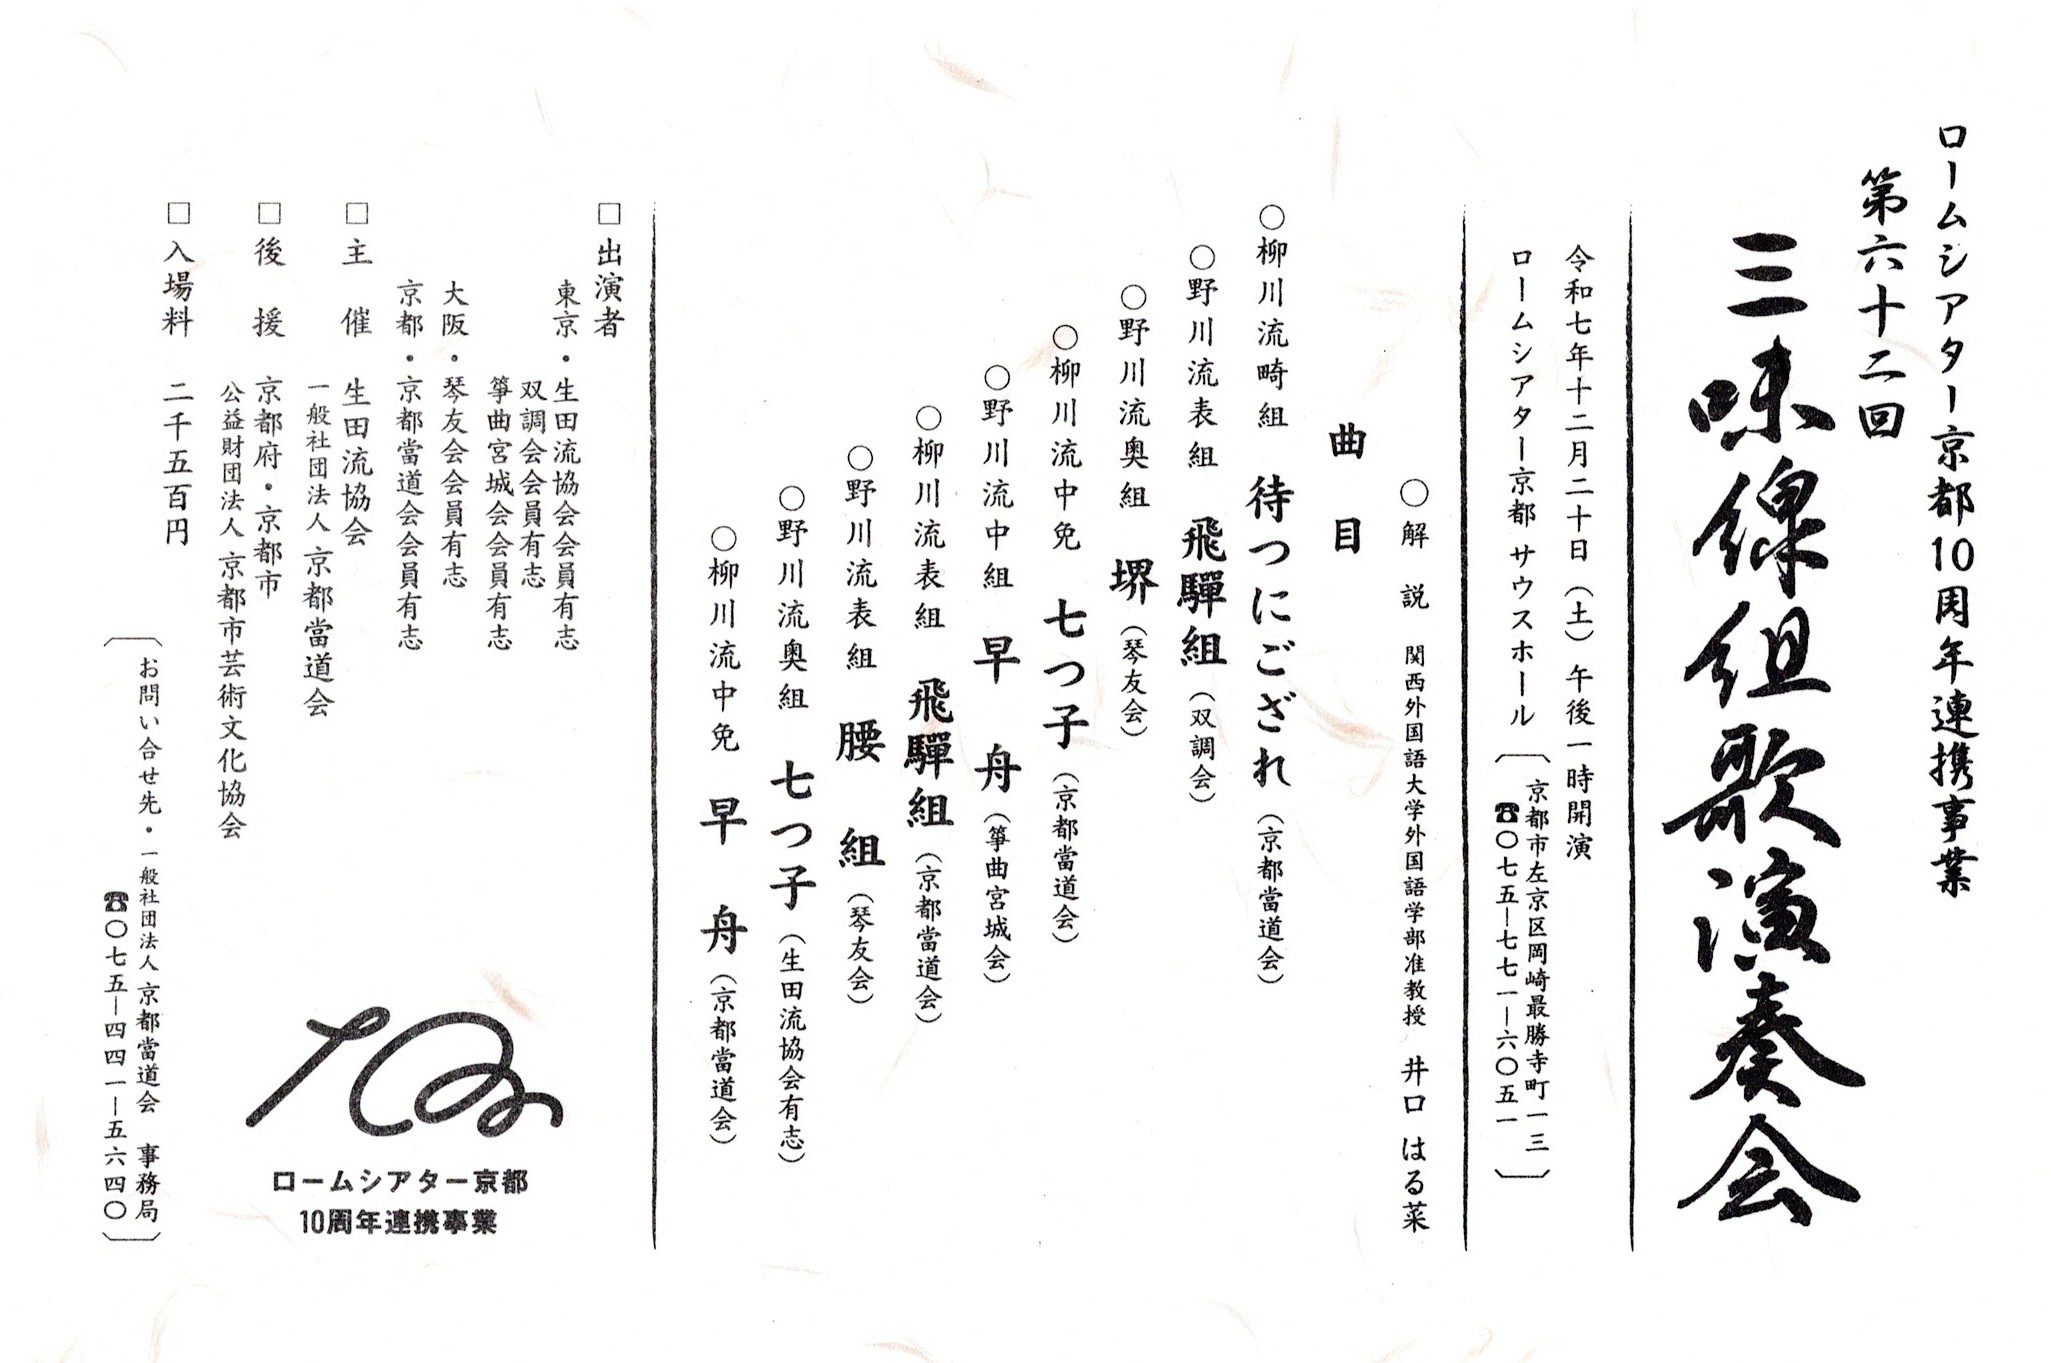 ロームシアター京都10周年連携事業
第六十二回
三味線組歌演奏会
令和七年十二月二十日（土）午後一時開演
ロームシアター京都 サウスホール
京都市左京区岡崎最勝寺町一三
☎〇七五―七七一―六〇五一
〇解　説　関西外国語大学外国語学部准教授　井口はる菜
曲　目
〇柳川流畸組　待つにござれ（京都當道会）
〇野川流表組　飛騨組（双調会）
〇野川流奥組　堺（琴友会）
〇柳川流中免　七つ子（京都當道会）
〇野川流中組　早　舟（箏曲宮城会）
〇柳川流表組　飛騨組（京都當道会）
〇野川流表組　腰　組（琴友会）
〇野川流奥組　七つ子（生田流協会有志）
〇柳川流中免　早　舟（京都當道会）
□出演者
東京・生田流協会会員有志
双調会会員有志
箏曲宮城会会員有志
大阪・琴友会会員有志
京都・京都當道会会員有志
□主　催　生田流協会
一般社団法人 京都當道会
□後　援　京都府・京都市
公益財団法人 京都市芸術文化協会
□入場料　二千五百円
お問い合せ先・一般社団法人 京都當道会　事務局
☎〇七五―四四一―五六四〇
ロームシアター京都
10周年連携事業